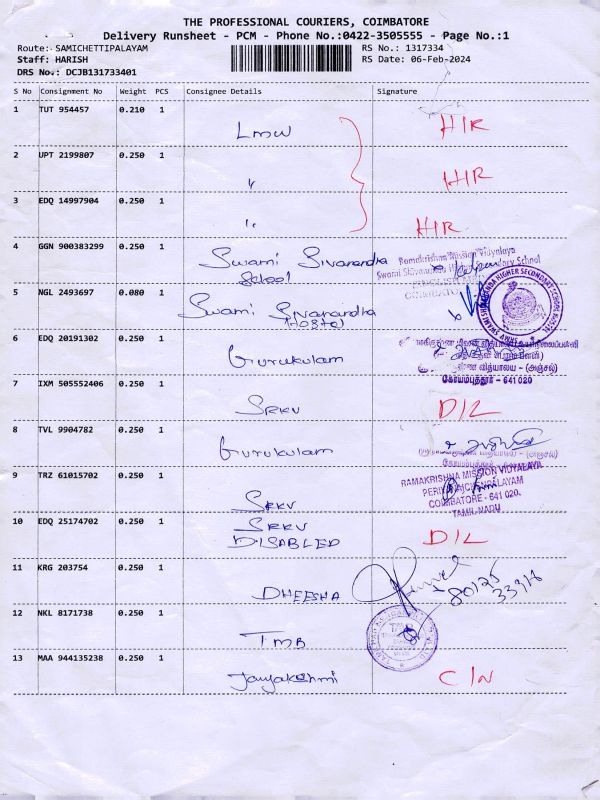 THE PROFESSIONAL COURIERS, COIMBATORE
Delivery Runsheet - PCM - Phone No.:0422-3505555 - Page No.:1
Route: SAMICHETTIPALAYAM
RS No.: 1317334
Staff: HARISH
RS Date: 06-Feb-2024
DRS No.: DCJB131733401
S No Consignment No Weight PCS Consignee Details Signature
1 TUT 954457 0.210 1 LMW H/R
2 UPT 2199807 0.250 1 " H/R
3 EDQ 14997904 0.250 1 " H/R
4 GGN 900383299 0.250 1 Swami Sivanandha
School
Ramakrishna Mission Vidyalaya
Secondary School
5 NGL 2493697 0.080 1 Swami Sivanandha
(Hostel)
6 EDQ 20191302 0.250 1 Gurukulam
வித்யாலய - (அஞ்சல்)
கோயம்புத்தூர் - 641 020
7 IXM 505552406 0.250 1 SRKV D/L
8 TVL 9904782 0.250 1 Gurukulam
9 TRZ 61015702 0.250 1 SRKV
RAMAKRISHNA MISSION VIDYALAYA
COIMBATORE - 641 020.
TAMIL NADU
10 EDQ 25174702 0.250 1 SRKV
DISABLED D/L
11 KRG 203754 0.250 1 DHEESHA
80125
12 NKL 8171738 0.250 1 TMB
13 MAA 944135238 0.250 1 Jayalakshmi C/N